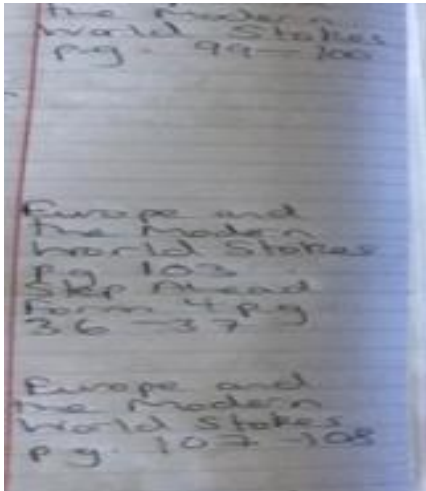 the Modern
World Stokes
pg. 99-100
Europe and
the Modern
World Stokes
pg 103
Step Ahead
Form 4 pg
36-37
Europe and
the Modern
World Stokes
pg. 107-108